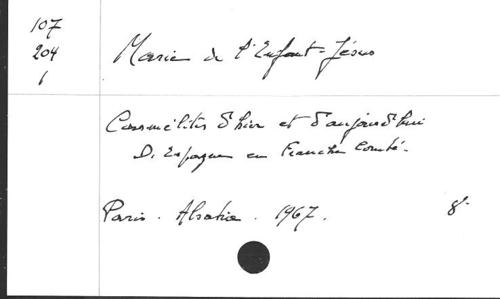 107
204
1
Marie de l'Enfant-Jésus
Carmélites d'hier et d'aujourd'hui
D'Espagne en Franche Comté.
Paris. Alsatia. 1967. 8°